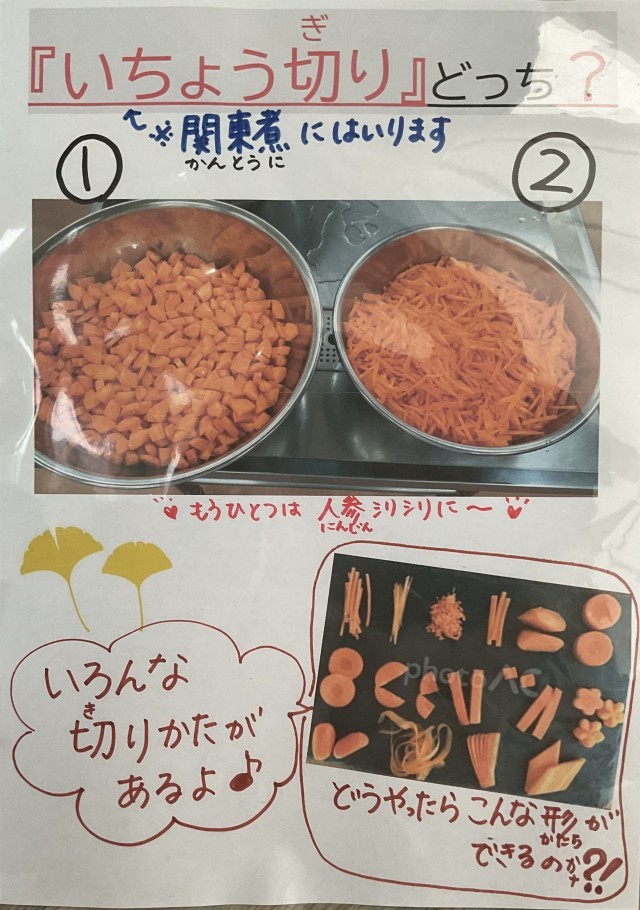 『いちょう切り』どっち？
ぎ
↑※関東煮にはいります
かんとうに
① ②
もうひとつは 人参シリシリに〜
にんじん
いろんな
切りかたが
き
あるよ♪
photo AC
どうやったらこんな形が
かたち
できるのかな?!